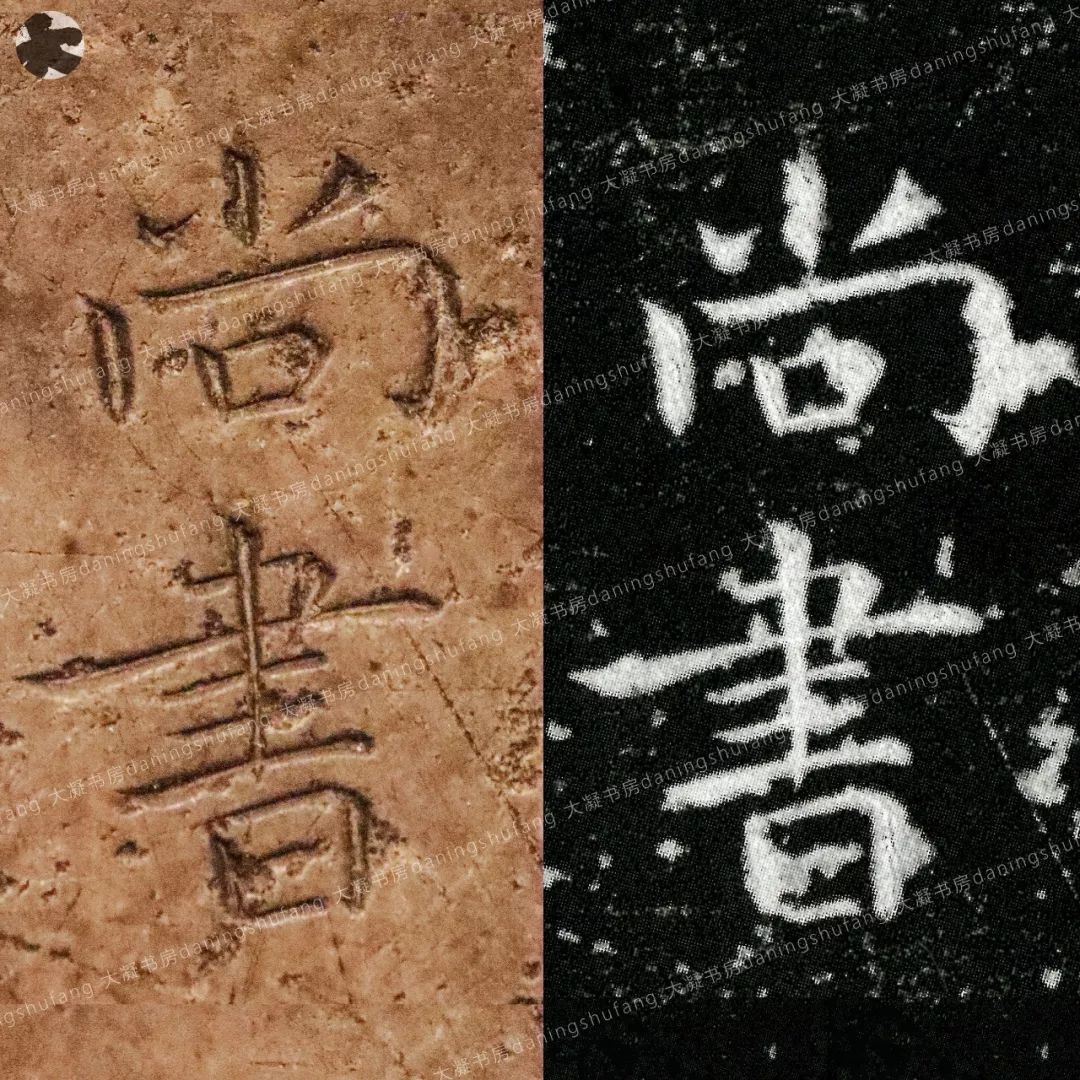 尚
書
尚
書
大凝书房daningshufang